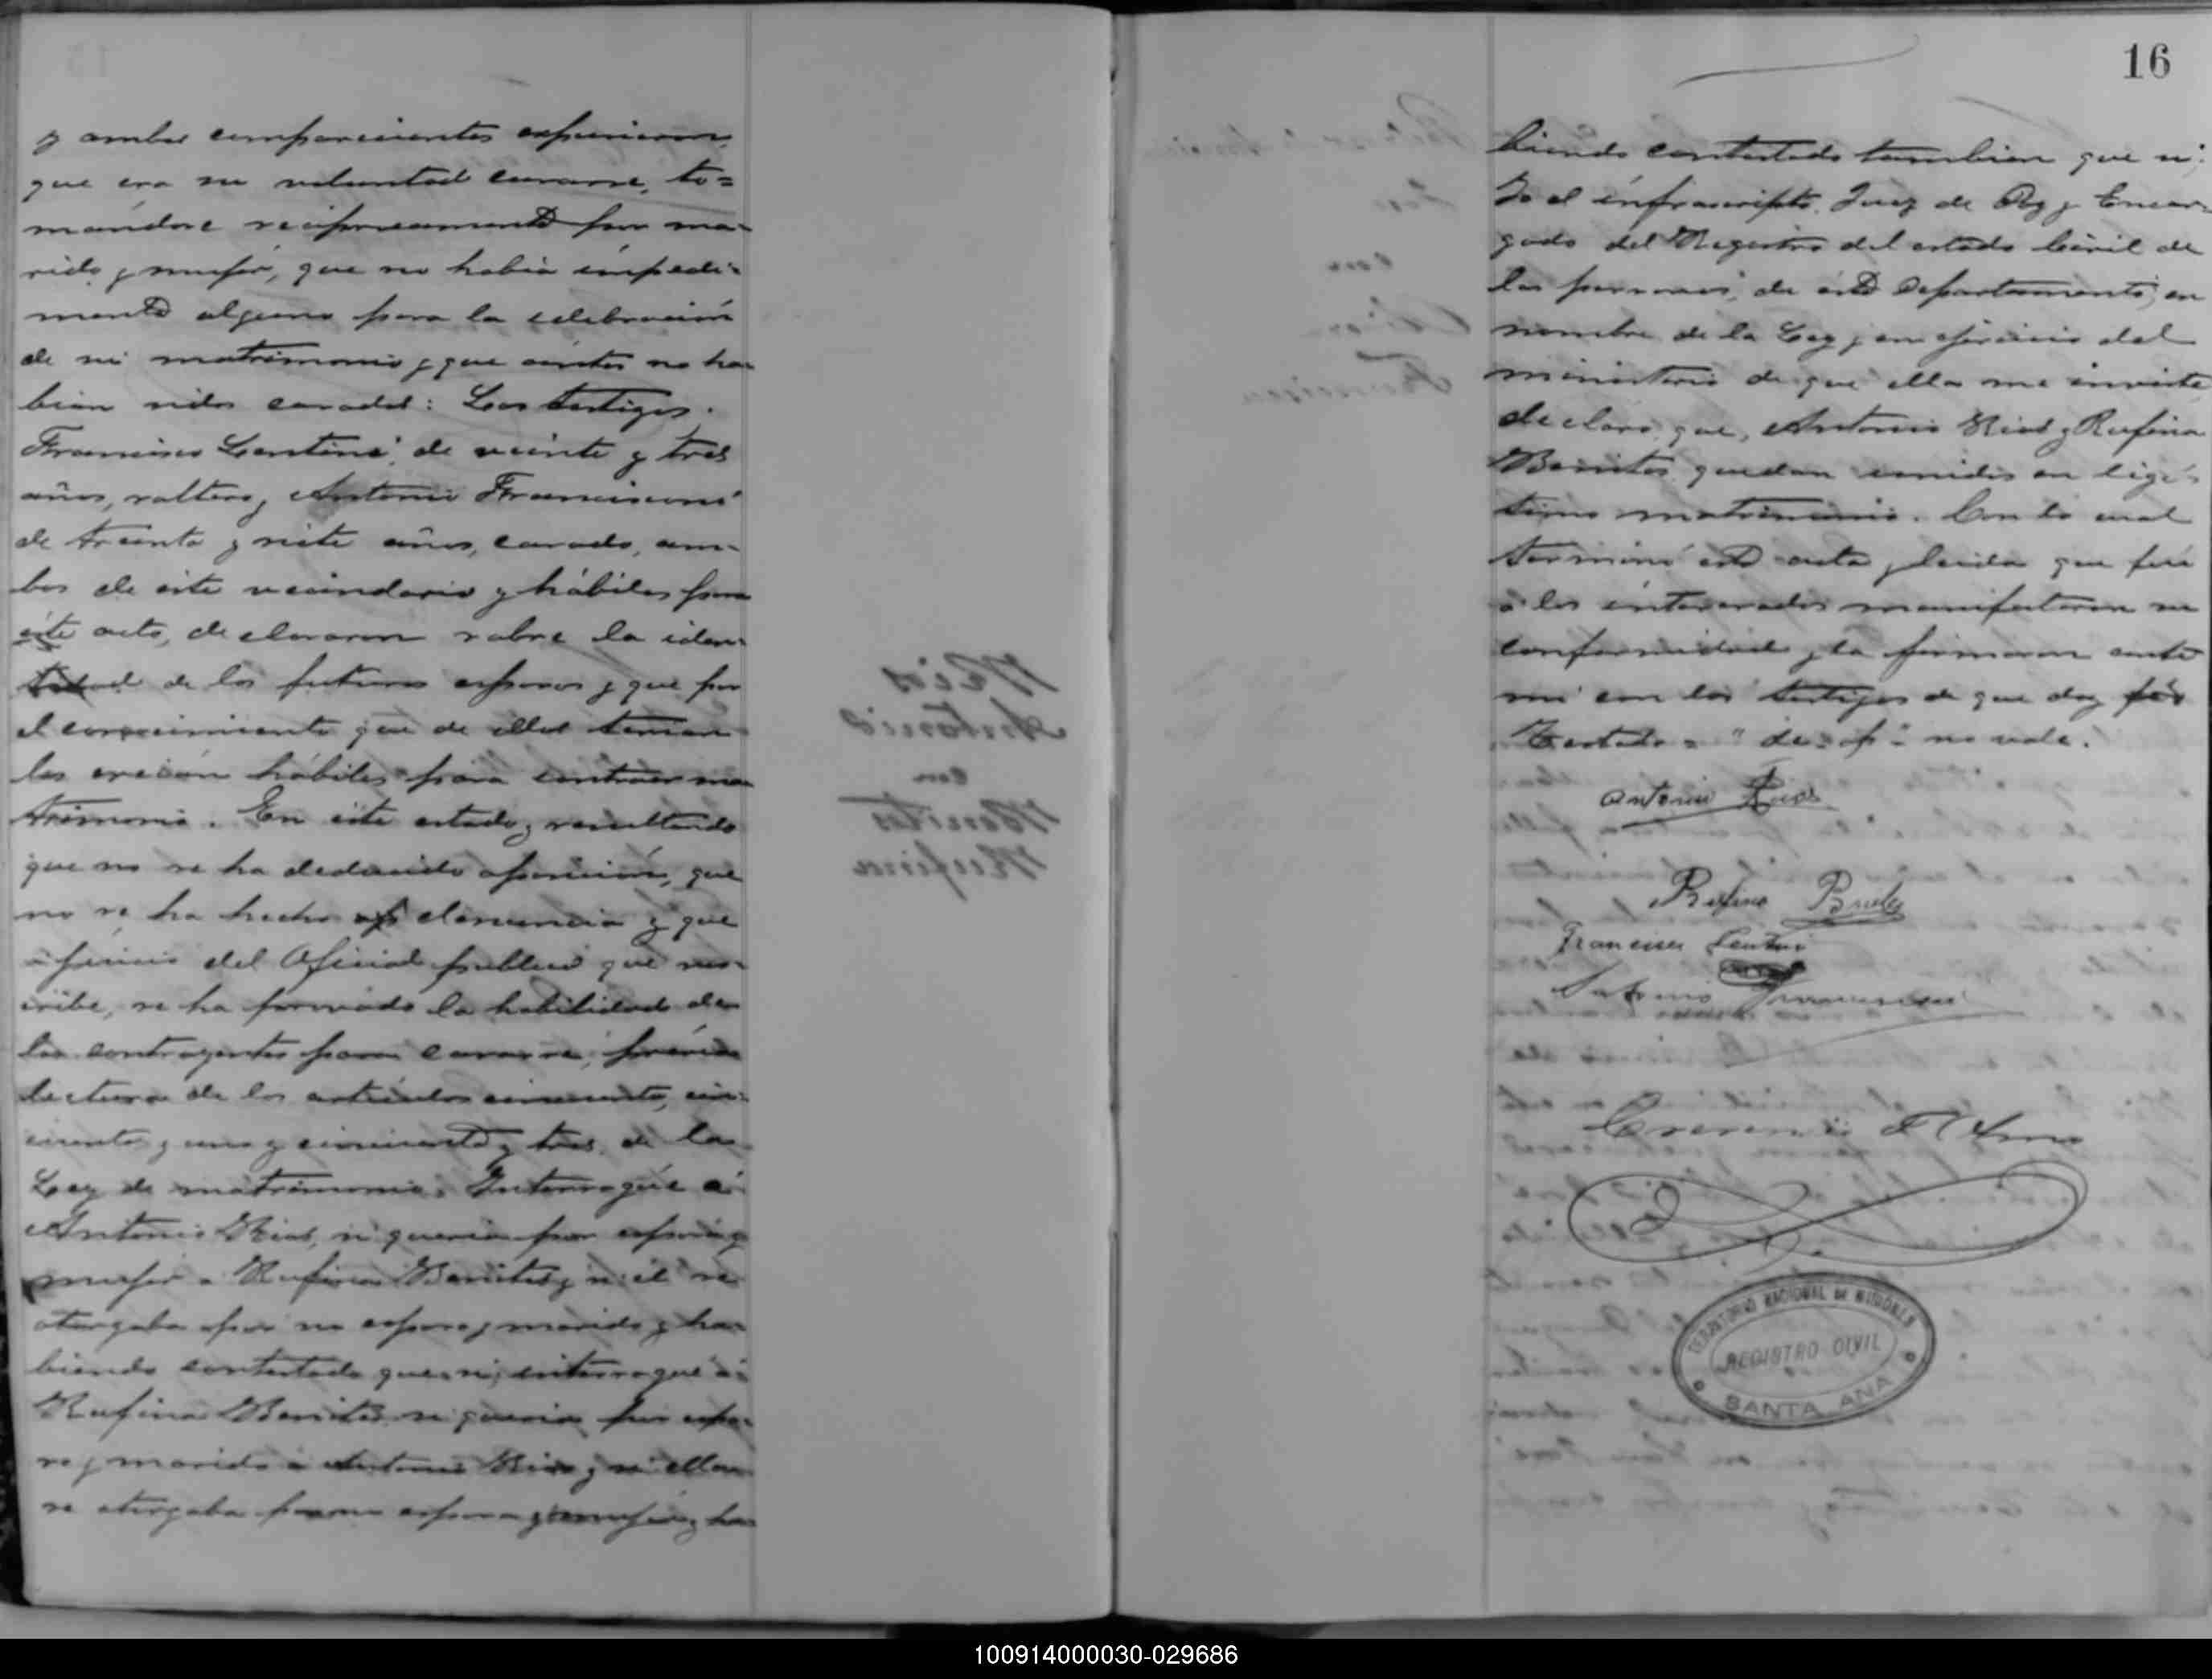 y ambos comparecientes espusieron
que era su voluntad casarse, to=
mándose reciprocamente por ma-
rido y mujer, que no había impedi-
mento alguno para la celebración
de su matrimonio y que antes no ha-
bian sido casados: Los testigos.
Francisco Lentini de veinte y tres
años, soltero, Antonio Francisconi
de treinta y siete años, casado, am-
bos de este vecindario y hábiles para
este acto, declararon sobre la iden-
tidad de los futuros esposos y que por
el conocimiento que de ellos tenian
los creian hábiles para contraer ma
trimonio. En este estado y resultando
que no se ha deducido oposición, que
no se ha hecho denuncia y que
a juicio del Oficial publico que sus-
cribe, se ha formado la habilidad de
los contrayentes para casarse, previa
lectura de los articulos cincuenta, cin-
cuenta y uno y cincuenta y tres de la
Ley de matrimonio, Interrogué á
Antonio Rios, si queria por esposa y
mujer a Rufina Benites y si él se
otorgaba por su esposo y marido y ha-
biendo contestado que si, interrogué á
Rufina Benites si queria por espo-
so y marido a Antonio Rios y si ella
se otorgaba por su esposa y mujer y ha
16
biendo contestado tambien que si,
Yo el infrascripto, Juez de Paz y Encar-
gado del Registro del estado Civil de
las personas, de este Departamento, en
nombre de la Ley y en ejercicio del
ministerio de que ella me inviste
declaro que, Antonio Rios y Rufina
Benites quedan unidos en legi-
timo matrimonio. Con lo cual
terminó este acta y leida que fué
á los interesados manifestaron su
conformidad y la firmaron ante
mi con los testigos de que doy fé
Testado = " de = " no vale.
Antonio Rios
Rufina
Francisco Lentini
Antonio Francisconi
TERRITORIO NACIONAL DE MISIONES
REGISTRO CIVIL
SANTA ANA
Rios
Antonio
con
Benites
Rufina
100914000030-029686